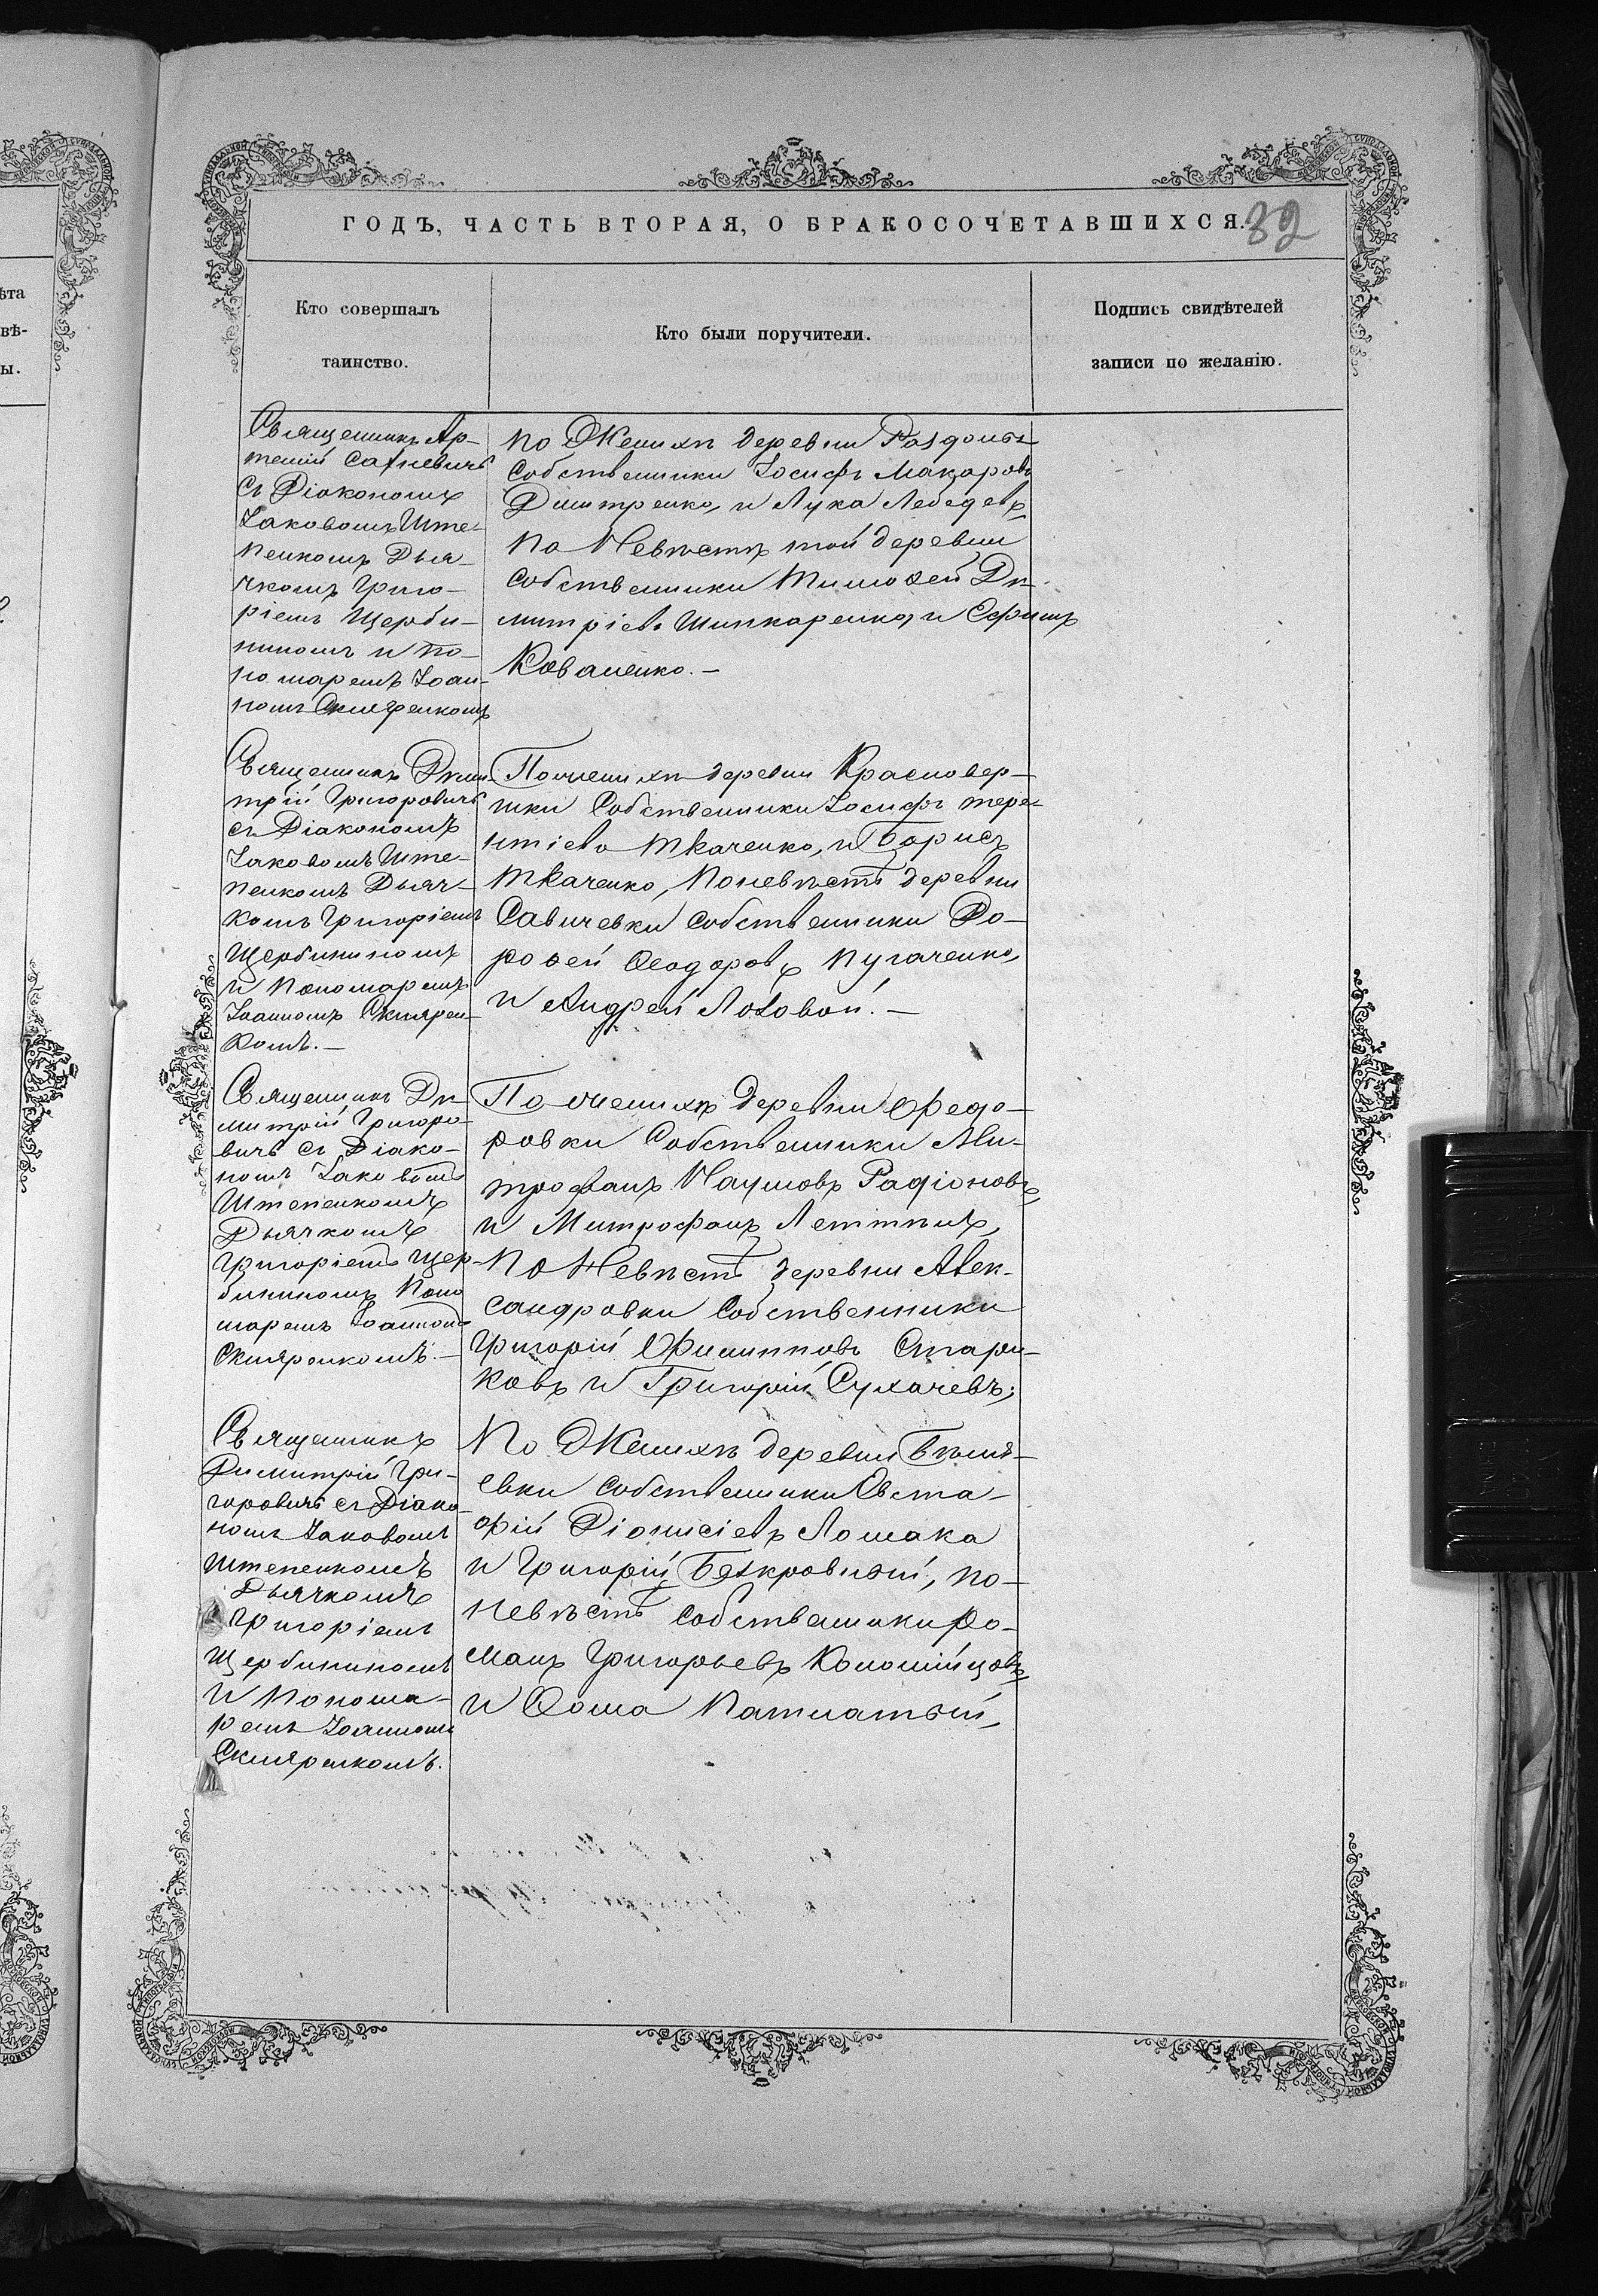 ГОДЪ, ЧАСТЬ ВТОРАЯ, О БРАКОСОЧЕТАВШИХСЯ.
32
Кто совершалъ
таинство.
Кто были поручители.
Подпись свидѣтелей
записи по желанію.
Священникъ Ар-
темій Сахневичъ
съ Діакономъ
Іаковомъ Ште-
пенкомъ Дья-
чкомъ Григо-
ріемъ Щерби-
ниномъ и По-
номаремъ Іоан-
номъ Скляренкомъ
По Женихѣ деревни Раздолья
Собственники Іосифъ Макаровъ
Дмитренко, и Лука Лебедевъ,
По Невѣстѣ той деревни
Собственники Тимоѳей Ди-
митріевъ Шинкаренко, и Ефимъ
Коваленко.–
Священникъ Дими-
трій Григоровичъ
съ Діакономъ
Іаковомъ Ште-
пенкомъ Дьяч-
комъ Григоріемъ
Щербининомъ
и Пономаремъ
Іоанномъ Скларен-
комъ.–
По женихѣ деревни Красновер-
шки Собственники Іосифъ Тере-
нтіевъ Ткаченко, и Борисъ
Ткаченко, По невѣстѣ деревни
Савичевки Собственники До-
роѳей Ѳеодоровъ Пугаченко,
и Андрей Лозовой.–
Священникъ Ди-
митрій Григоро-
вичъ съ Діако-
номъ Іаковомъ
Штепенкомъ
Дьячкомъ
Григоріемъ Щер-
бининомъ Поно
маремъ Іоанномъ
Скляренкомъ.–
По женихѣ деревни Ѳедо-
ровки Собственники Ми-
трофанъ Наумовъ Радіоновъ,
и Митрофанъ
По Невѣстѣ деревни Алек-
сандровки Собственники
Григорій Филипповъ Стари-
ковъ и Григорій Сухачевъ;
Священникъ
Димитрій Гри-
горовичъ съ Діако-
номъ Іаковомъ
Штепенкомъ
Дьячкомъ
Григоріемъ
Щербининомъ
и Понома-
ремъ Іоанномъ
Скляренкомъ.
По Женихѣ деревни Бѣля-
евки Собственники Евста-
фій Діонисіевъ Ломака
и Григорій Безкровный, по-
невѣстѣ Собственники Ро-
манъ Григорьевъ Коломійцовъ,
и Ѳома Патлатый,